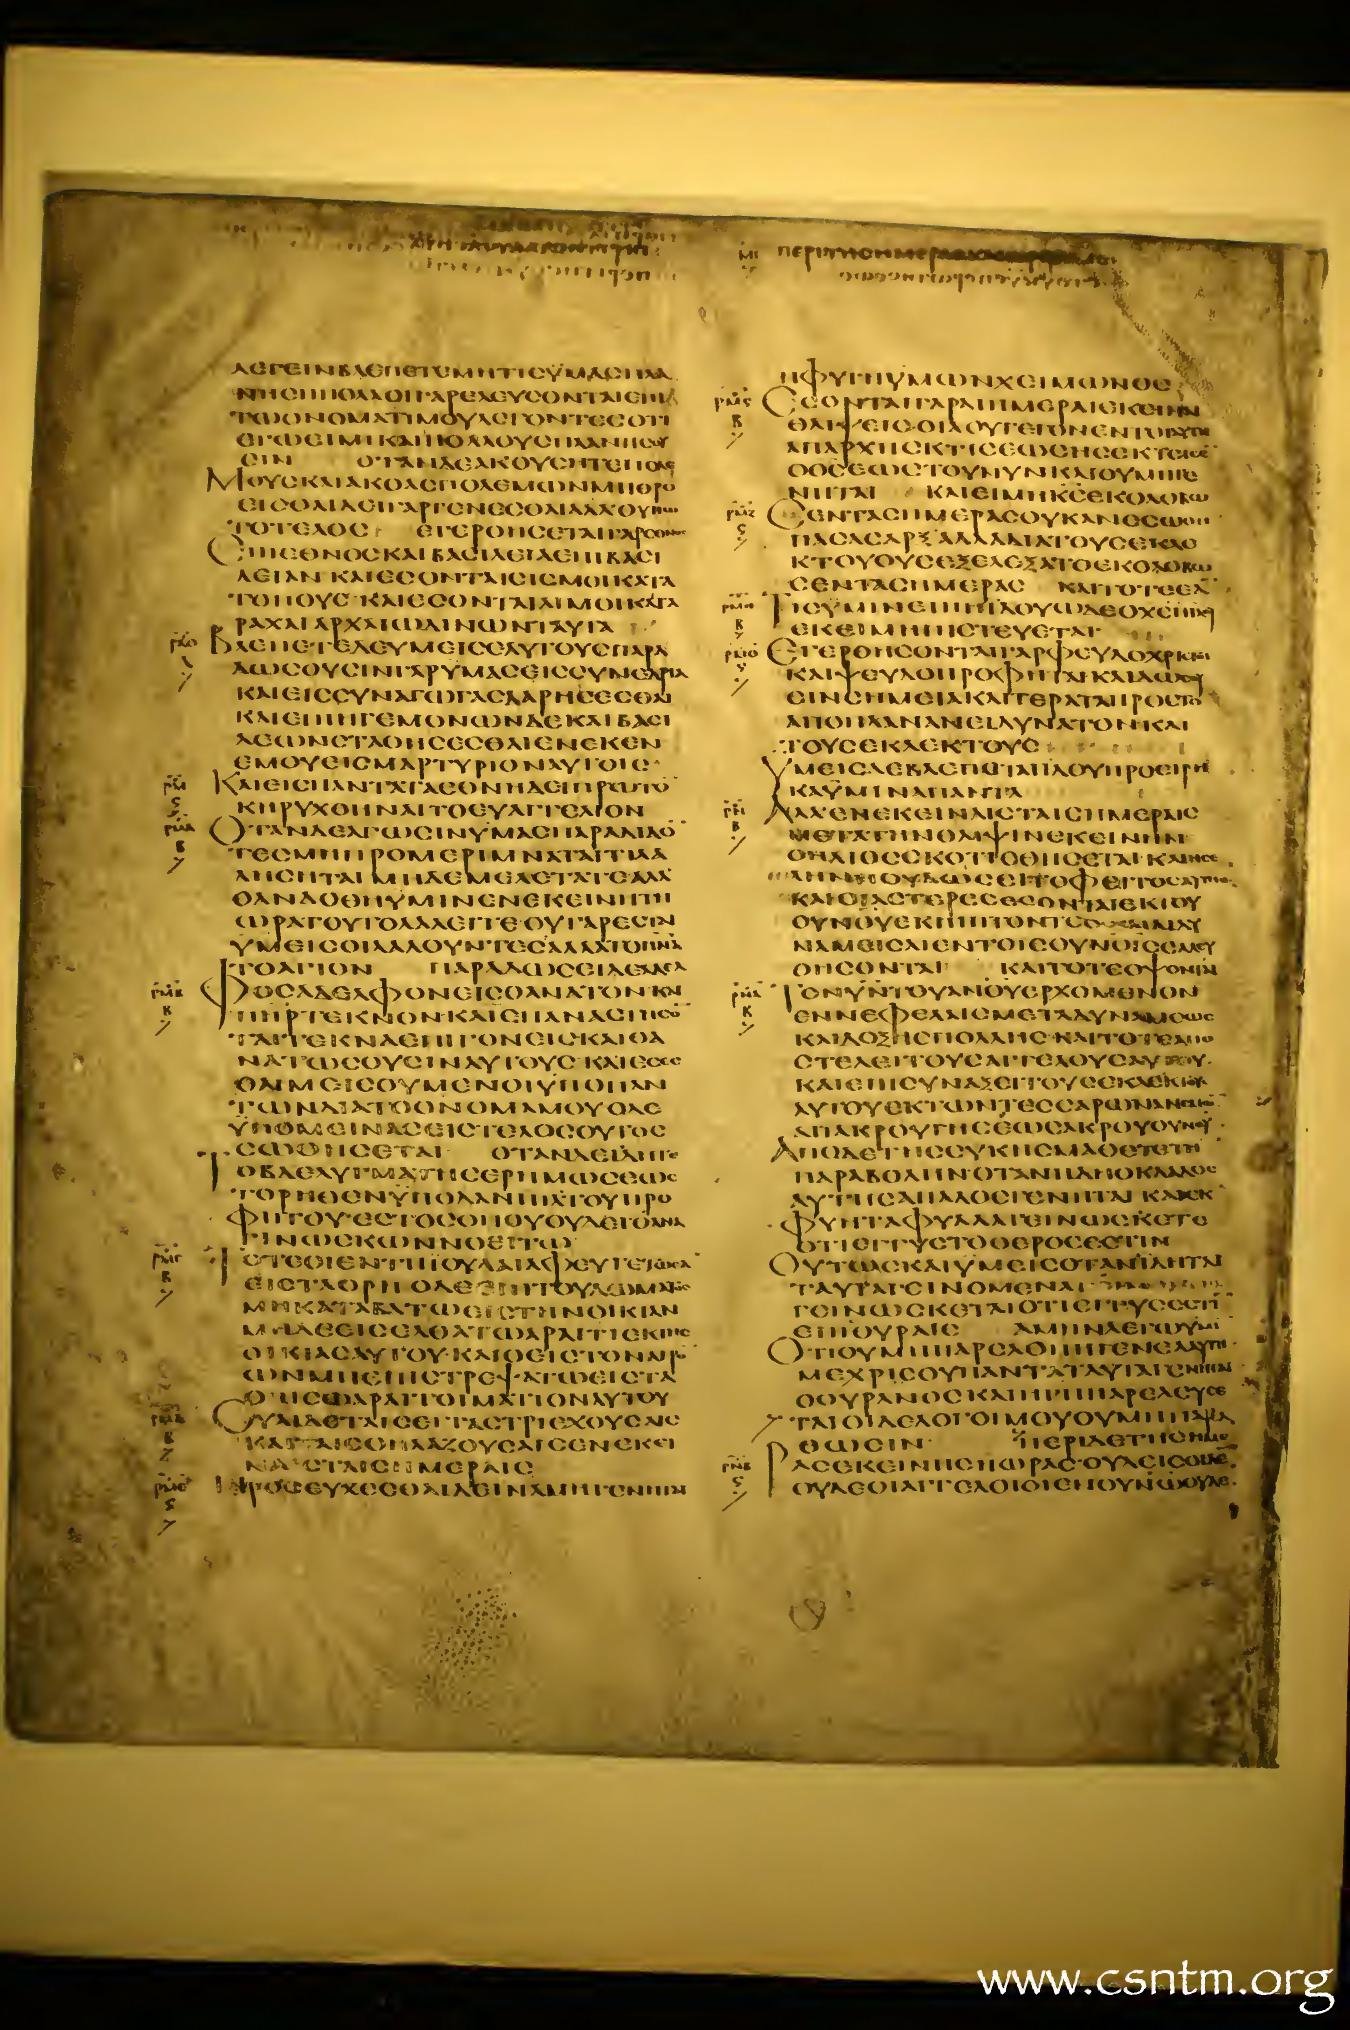 ΛΕΓΕΙΝΒΛΕΠΕΤΕΜΗΤΙΣΥΜΑΣΠΛΑ
ΝΗΣΗΠΟΛΛΟΙΓΑΡΕΛΕΥΣΟΝΤΑΙΕΠΙ
ΤΩΟΝΟΜΑΤΙΜΟΥΛΕΓΟΝΤΕΣΟΤΙ
ΕΓΩΕΙΜΙΚΑΙΠΟΛΛΟΥΣΠΛΑΝΗΣΟΥ
ΣΙΝ ΟΤΑΝΔΕΑΚΟΥΣΗΤΕΠΟΛΕ
ΜΟΥΣΚΑΙΑΚΟΑΣΠΟΛΕΜΩΝΜΗΘΡΟ
ΕΙΣΘΑΙΔΕΙΓΑΡΓΕΝΕΣΘΑΙΑΛΛΟΥΠΩ
ΤΟΤΕΛΟΣ ΕΓΕΡΘΗΣΕΤΑΙΓΑΡΕΘΝΟΣ
ΕΠΙΕΘΝΟΣΚΑΙΒΑΣΙΛΕΙΑΕΠΙΒΑΣΙ
ΛΕΙΑΝΚΑΙΕΣΟΝΤΑΙΣΙΣΜΟΙΚΑΤΑ
ΤΟΠΟΥΣΚΑΙΕΣΟΝΤΑΙΛΙΜΟΙΚΑΙΤΑ
ΡΑΧΑΙΑΡΧΑΙΩΔΙΝΩΝΤΑΥΤΑ
ΒΛΕΠΕΤΕΔΕΥΜΕΙΣΕΑΥΤΟΥΣΠΑΡΑ
ΔΩΣΟΥΣΙΝΓΑΡΥΜΑΣΕΙΣΣΥΝΕΔΡΙΑ
ΚΑΙΕΙΣΣΥΝΑΓΩΓΑΣΔΑΡΗΣΕΣΘΑΙ
ΚΑΙΕΠΙΗΓΕΜΟΝΩΝΔΕΚΑΙΒΑΣΙ
ΛΕΩΝΣΤΑΘΗΣΕΣΘΑΙΕΝΕΚΕΝ
ΕΜΟΥΕΙΣΜΑΡΤΥΡΙΟΝΑΥΤΟΙΣ
ΚΑΙΕΙΣΠΑΝΤΑΤΑΕΘΝΗΔΕΙΠΡΩΤΟ
ΚΗΡΥΧΘΗΝΑΙΤΟΕΥΑΓΓΕΛΙΟΝ
ΟΤΑΝΔΕΑΓΩΣΙΝΥΜΑΣΠΑΡΑΔΙΔΟ
ΤΕΣΜΗΠΡΟΜΕΡΙΜΝΑΤΑΙΤΙΛΑ
ΛΗΣΗΤΑΙΜΗΔΕΜΕΛΕΤΑΤΑΙΕΑΝ
ΘΑΝΔΟΘΗΥΜΙΝΕΝΕΚΕΙΝΗΤΗ
ΩΡΑΤΟΥΤΟΛΑΛΕΙΤΕΟΥΓΑΡΕΣΤΑΙ
ΥΜΕΙΣΟΙΛΑΛΟΥΝΤΕΣΑΛΛΑΤΟΠΝΑ
ΤΟΑΓΙΟΝ ΠΑΡΑΔΩΣΕΙΔΕΑΔΕΛ
ΦΟΣΑΔΕΛΦΟΝΕΙΣΘΑΝΑΤΟΝΚΑΙ
ΠΗΡΤΕΚΝΟΝΚΑΙΕΠΑΝΑΣΤΗΣΟ
ΤΑΙΤΕΚΝΑΕΠΙΓΟΝΕΙΣΚΑΙΘΑ
ΝΑΤΩΣΟΥΣΙΝΑΥΤΟΥΣΚΑΙΕΣΕΣ
ΘΑΙΜΕΙΣΟΥΜΕΝΟΙΥΠΟΠΑΝ
ΤΩΝΔΙΑΤΟΟΝΟΜΑΜΟΥΟΔΕ
ΥΠΟΜΕΙΝΑΣΕΙΣΤΕΛΟΣΟΥΤΟΣ
ΣΩΘΗΣΕΤΑΙ ΟΤΑΝΔΕΙΔΗΤΕ
ΤΟΒΔΕΛΥΓΜΑΤΗΣΕΡΗΜΩΣΕΩΣ
ΤΟΡΗΘΕΝΥΠΟΔΑΝΙΗΛΤΟΥΠΡΟ
ΦΗΤΟΥΕΣΤΟΣΟΠΟΥΟΥΔΕΙΟΑΝΑ
ΓΙΝΩΣΚΩΝΝΟΕΙΤΩ
ΤΟΤΕΟΙΕΝΤΗΙΟΥΔΑΙΑΦΕΥΓΕΤΩΣΑ
ΕΙΣΤΑΟΡΗΟΔΕΕΠΙΤΟΥΔΩΜΑΤΟΣ
ΜΗΚΑΤΑΒΑΤΩΕΙΣΤΗΝΟΙΚΙΑΝ
ΜΗΔΕΕΙΣΕΛΘΑΤΩΑΡΑΙΤΙΕΚΤΗΣ
ΟΙΚΙΑΣΑΥΤΟΥΚΑΙΟΕΙΣΤΟΝΑΓΡΟ
ΩΝΜΗΕΠΙΣΤΡΕΨΑΤΩΕΙΣΤΑ
ΟΠΙΣΩΑΡΑΙΤΟΙΜΑΤΙΟΝΑΥΤΟΥ
ΟΥΑΙΔΕΤΑΙΣΕΝΓΑΣΤΡΙΕΧΟΥΣΑΙΣ
ΚΑΙΤΑΙΣΘΗΛΑΖΟΥΣΑΙΣΕΝΕΚΕΙ
ΝΑΙΣΤΑΙΣΗΜΕΡΑΙΣ
ΠΡΟΣΕΥΧΕΣΘΑΙΔΕΙΝΑΜΗΓΕΝΗΤΑΙ
ΗΦΥΓΗΥΜΩΝΧΕΙΜΩΝΟΣ
ΕΣΟΝΤΑΙΓΑΡΑΙΗΜΕΡΑΙΕΚΕΙΝΑΙ
ΘΛΙΨΕΙΣΟΙΑΟΥΓΕΓΟΝΕΝΤΟΙΑΥΤΗ
ΑΠΑΡΧΗΣΚΤΙΣΕΩΣΗΣΕΚΤΙΣΕ
ΟΘΣΕΩΣΤΟΥΝΥΝΚΑΙΟΥΜΗΓΕ
ΝΗΤΑΙ ΚΑΙΕΙΜΗΚΣΕΚΟΛΟΒΩ
ΣΕΝΤΑΣΗΜΕΡΑΣΟΥΚΑΝΕΣΩΘΗ
ΠΑΣΑΣΑΡΞΑΛΛΑΔΙΑΤΟΥΣΕΚΛΕ
ΚΤΟΥΟΥΣΕΞΕΛΕΞΑΤΟΕΚΟΛΟΒΩ
ΣΕΝΤΑΣΗΜΕΡΑΣ ΚΑΙΤΟΤΕΕΑ
ΤΙΣΥΜΙΝΕΙΠΗΙΔΟΥΩΔΕΟΧΣΗΙΔΟΥ
ΕΚΕΙΜΗΠΙΣΤΕΥΕΤΑΙ
ΕΓΕΡΘΗΣΟΝΤΑΙΓΑΡΨΕΥΔΟΧΡΙΣΤΟΙ
ΚΑΙΨΕΥΔΟΠΡΟΦΗΤΑΙΚΑΙΔΩΣΟΥ
ΣΙΝΣΗΜΕΙΑΚΑΙΤΕΡΑΤΑΠΡΟΣΤΟ
ΑΠΟΠΛΑΝΑΝΕΙΔΥΝΑΤΟΝΚΑΙ
ΤΟΥΣΕΚΛΕΚΤΟΥΣ
ΥΜΕΙΣΔΕΒΛΕΠΕΤΑΙΙΔΟΥΠΡΟΕΙΡΗ
ΚΑΥΜΙΝΑΠΑΝΤΑ
ΑΛΛΕΝΕΚΕΙΝΑΙΣΤΑΙΣΗΜΕΡΑΙΣ
ΜΕΤΑΤΗΝΘΛΙΨΙΝΕΚΕΙΝΗΝ
ΟΗΛΙΟΣΣΚΟΤΙΣΘΗΣΕΤΑΙΚΑΙΗΣΕ
ΛΗΝΗΟΥΔΩΣΕΙΤΟΦΕΓΓΟΣΑΥΤΗΣ
ΚΑΙΟΙΑΣΤΕΡΕΣΕΣΟΝΤΑΙΕΚΤΟΥ
ΟΥΝΟΥΕΚΠΙΠΤΟΝΤΕΣΚΑΙΑΙΔΥ
ΝΑΜΕΙΣΑΙΕΝΤΟΙΣΟΥΝΟΙΣΣΑΛΕΥ
ΘΗΣΟΝΤΑΙ ΚΑΙΤΟΤΕΟΨΟΝΤΑΙ
ΤΟΝΥΝΤΟΥΑΝΟΥΕΡΧΟΜΕΝΟΝ
ΕΝΝΕΦΕΛΑΙΣΜΕΤΑΔΥΝΑΜΕΩΣ
ΚΑΙΔΟΞΗΣΠΟΛΛΗΣΚΑΙΤΟΤΕΑΠΟ
ΣΤΕΛΕΙΤΟΥΣΑΓΓΕΛΟΥΣΑΥΤΟΥ
ΚΑΙΕΠΙΣΥΝΑΞΕΙΤΟΥΣΕΚΛΕΚΤΟΥΣ
ΑΥΤΟΥΕΚΤΩΝΤΕΣΣΑΡΩΝΑΝΕΜΩ
ΑΠΑΚΡΟΥΓΗΣΕΩΣΑΚΡΟΥΟΥΝΟΥ
ΑΠΟΔΕΤΗΣΣΥΚΗΣΜΑΘΕΤΕΤΗ
ΠΑΡΑΒΟΛΗΝΟΤΑΝΗΔΗΟΚΛΑΔΟΣ
ΑΥΤΗΣΑΠΑΛΟΣΓΕΝΗΤΑΙΚΑΙΕΚ
ΦΥΗΤΑΦΥΛΛΑΓΕΙΝΩΣΚΕΤΕ
ΟΤΙΕΓΓΥΣΤΟΘΕΡΟΣΕΣΤΙΝ
ΟΥΤΩΣΚΑΙΥΜΕΙΣΟΤΑΝΙΔΗΤΑΙ
ΤΑΥΤΑΓΕΙΝΟΜΕΝΑ
ΓΕΙΝΩΣΚΕΤΑΙΟΤΙΕΓΓΥΣΕΣΤΙ
ΕΠΙΘΥΡΑΙΣ ΑΜΗΝΛΕΓΩΥΜΙ
ΟΤΙΟΥΜΗΠΑΡΕΛΘΗΗΓΕΝΕΑΑΥΤΗ
ΜΕΧΡΙΣΟΥΠΑΝΤΑΤΑΥΤΑΓΕΝΗΤΑΙ
ΟΟΥΡΑΝΟΣΚΑΙΗΓΗΠΑΡΕΛΕΥΣΕ
ΤΑΙΟΙΔΕΛΟΓΟΙΜΟΥΟΥΜΗΠΑΡΕΛ
ΘΩΣΙΝ ΠΕΡΙΔΕΤΗΣΗΜΕ
ΡΑΣΕΚΕΙΝΗΣΗΩΡΑΣΟΥΔΕΙΣΟΙΔΕ
ΟΥΔΕΟΙΑΓΓΕΛΟΙΟΙΕΝΟΥΝΩΟΥΔΕ
www.csntm.org